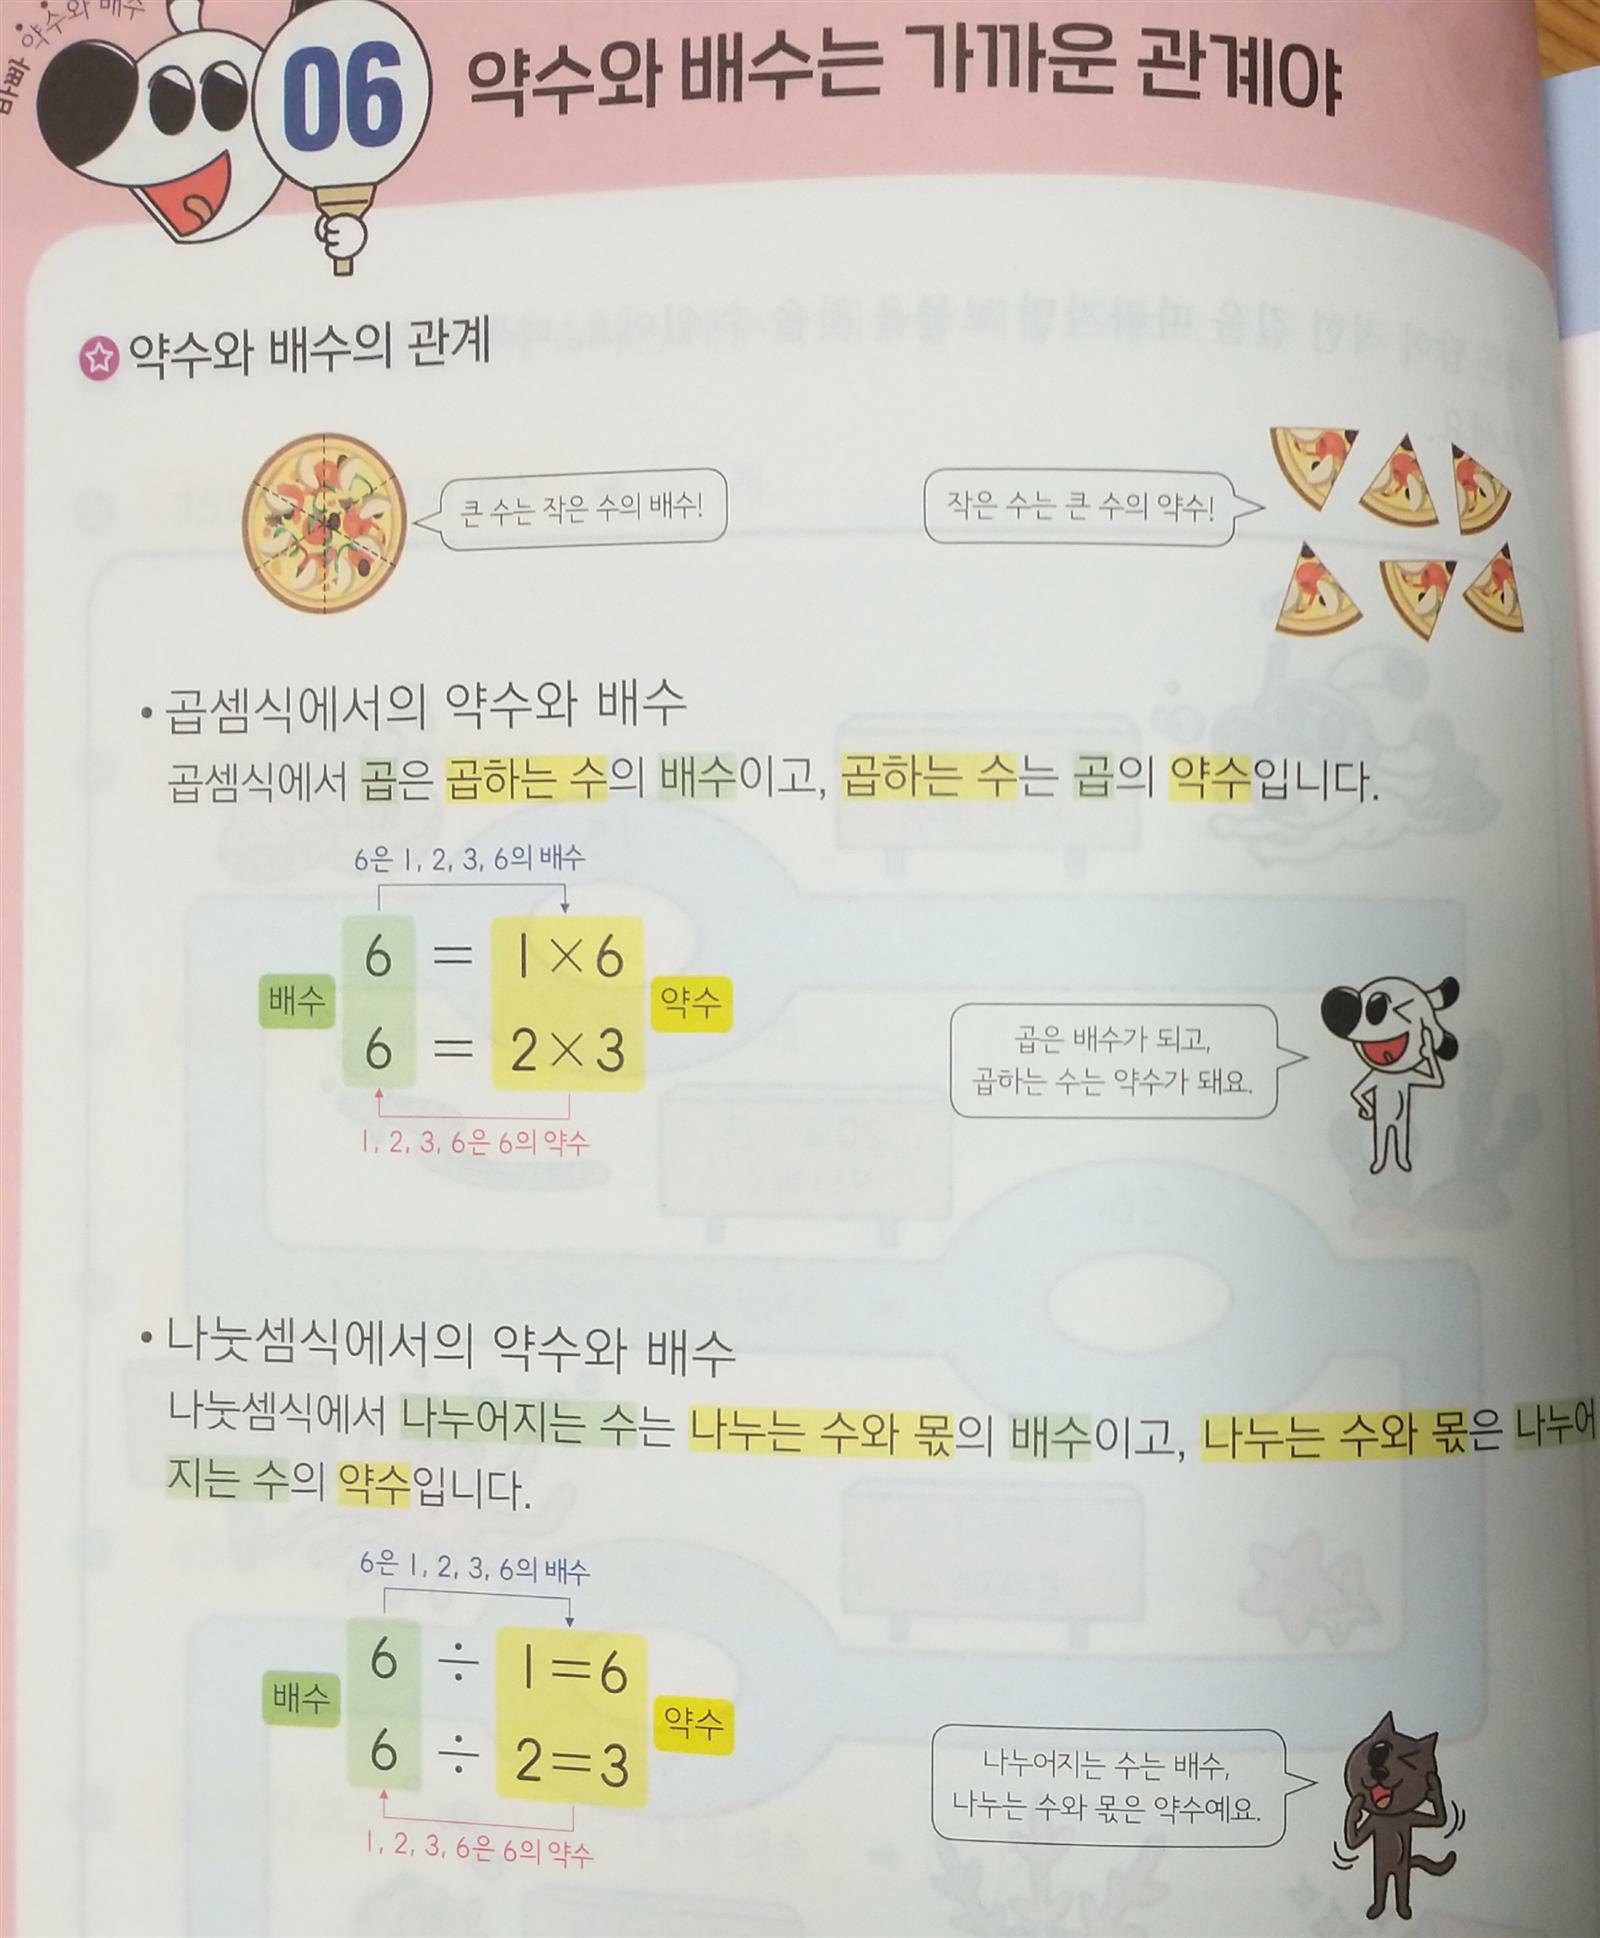 약수와 배수
06
약수와 배수는 가까운 관계야
약수와 배수의 관계
큰 수는 작은 수의 배수!
작은 수는 큰 수의 약수!
• 곱셈식에서의 약수와 배수
곱셈식에서 곱은 곱하는 수의 배수이고, 곱하는 수는 곱의 약수입니다.
6은 1, 2, 3, 6의 배수
6 = 1×6
배수
약수
6 = 2×3
1, 2, 3, 6은 6의 약수
곱은 배수가 되고,
곱하는 수는 약수가 돼요.
• 나눗셈식에서의 약수와 배수
나눗셈식에서 나누어지는 수는 나누는 수와 몫의 배수이고, 나누는 수와 몫은 나누어
지는 수의 약수입니다.
6은 1, 2, 3, 6의 배수
6 ÷ 1=6
배수
약수
6 ÷ 2=3
1, 2, 3, 6은 6의 약수
나누어지는 수는 배수,
나누는 수와 몫은 약수예요.